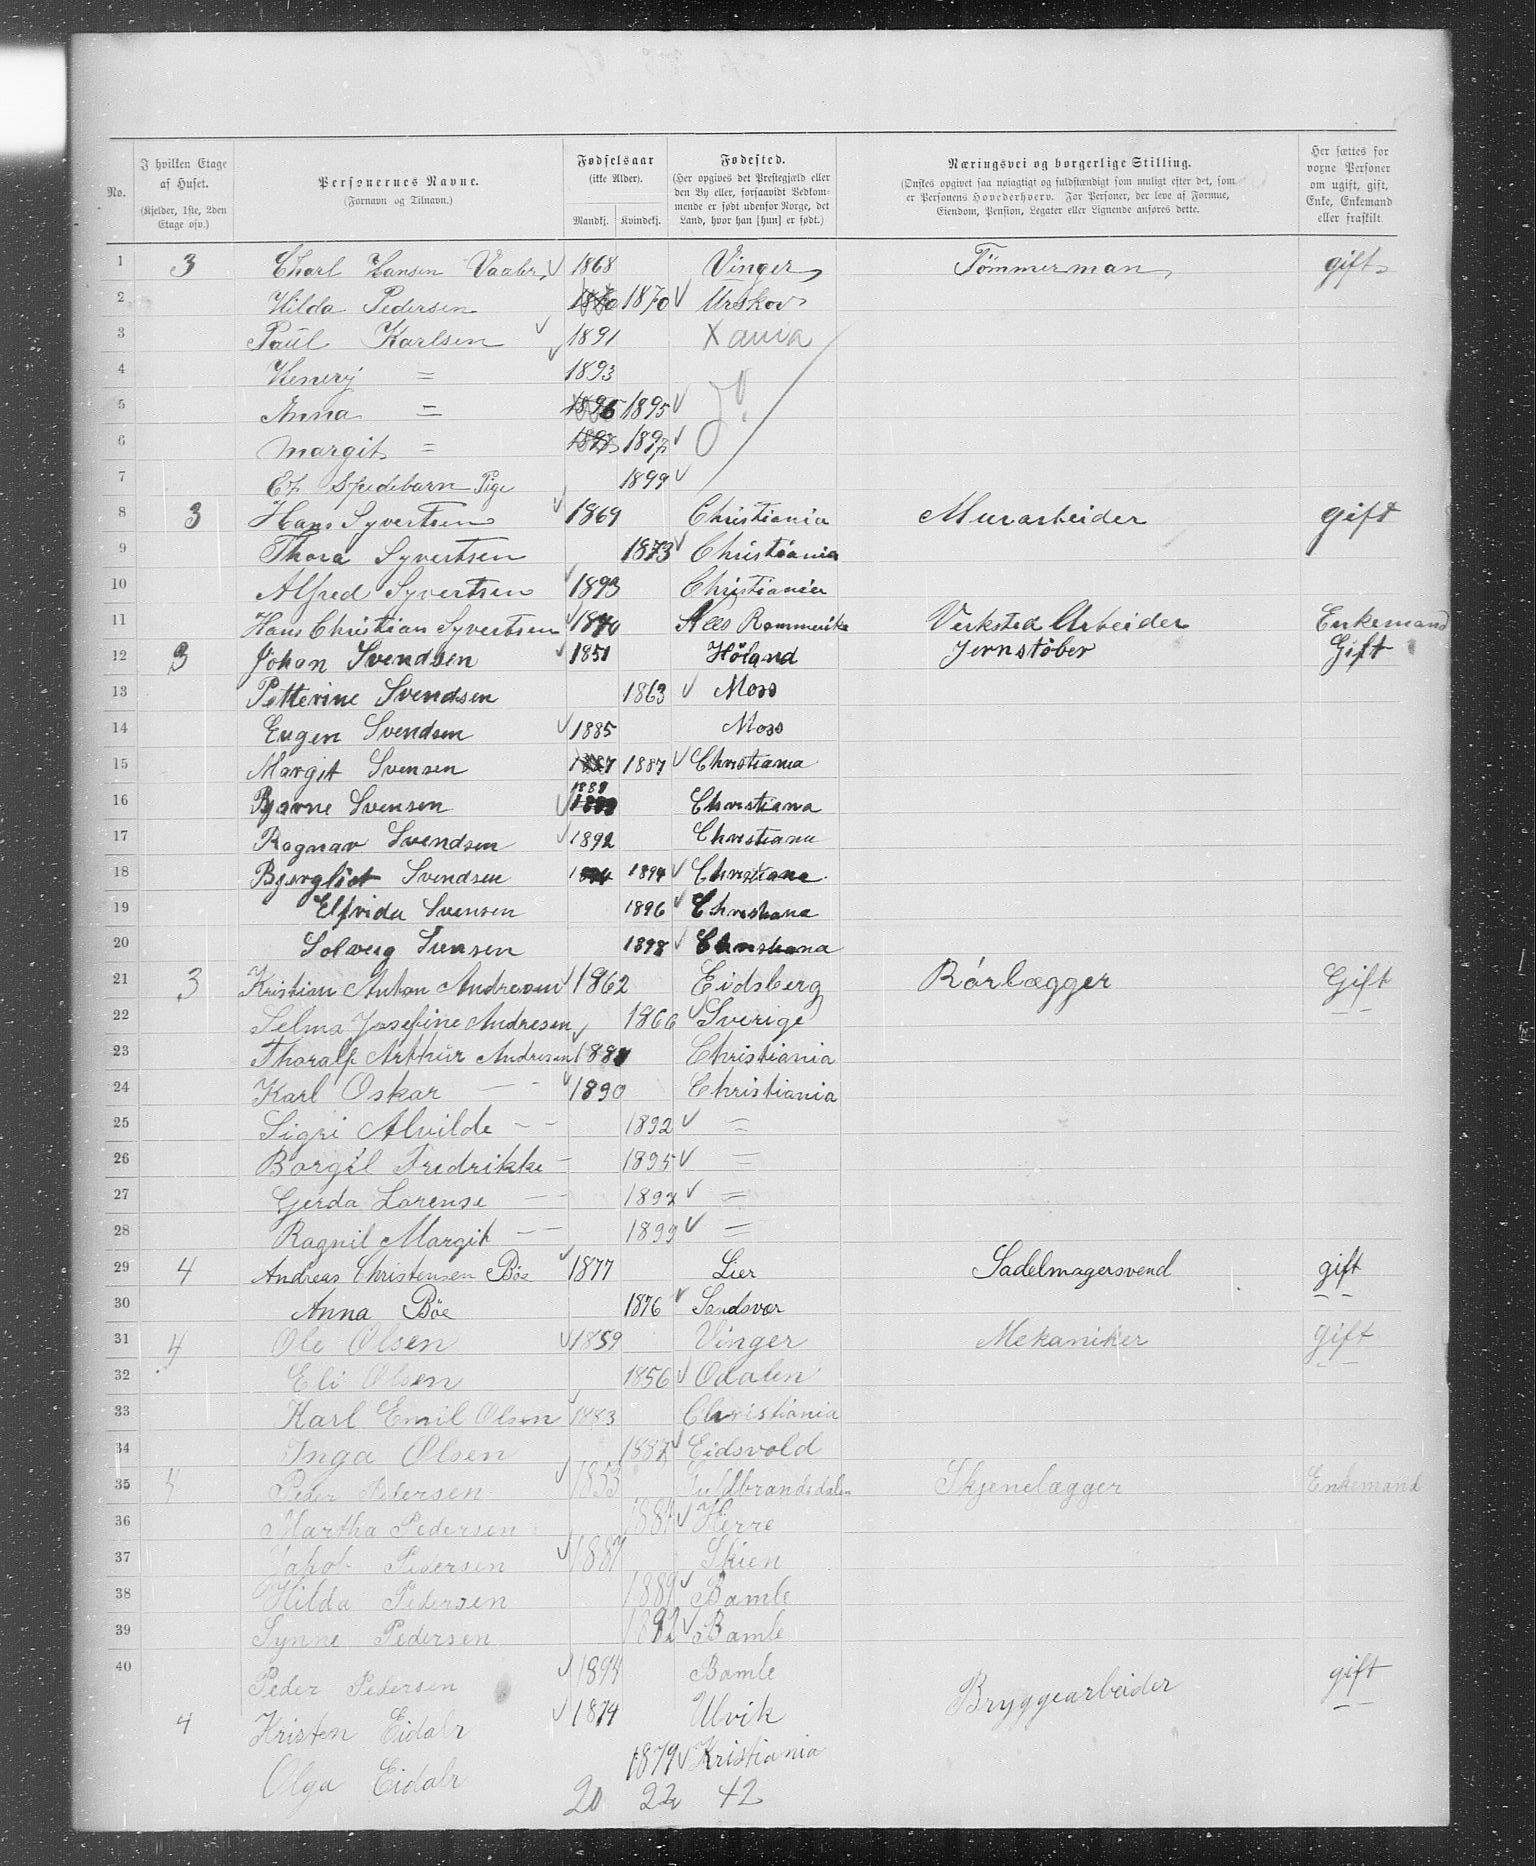 No. | I hvilken Etage af Huset. (Kjelder, 1ste, 2den Etage osv.) | Personernes Navne. (Fornavn og Tilnavn.) | Fødselsaar (ikke Alder). Mandkj. | Kvindekj. | Fødested. (Her opgives det Prestegjæld eller den By eller, forsaavidt Vedkommende er født udenfor Norge, det Land, hvor han [hun] er født.) | Næringsvei og borgerlige Stilling. (Ønskes opgivet saa nøiagtigt og fuldstændigt som muligt efter det, som er Personens Hovederhverv. For Personer, der leve af Formue, Eiendom, Pension, Legater eller Lignende anføres dette. | Her sættes for voxne Personer om ugift, gift, Enke, Enkemand eller fraskilt.
1 3 Charl Hansen Vaaler 1868 Vinger Tömmerman gift
2 Hilda Pedersen 1870 1870 Urskov
3 Paul Karlsen 1891 Xania
4 Henery = 1893
5 Anna = 1895 1895
6 Margit = 1897 1897
7 Et Spedebarn Pige 1899
8 3 Hans Syvertsen 1869 Christiania Murarbeider gift
9 Thora Syvertsen 1873 Christiania
10 Alfred Syvertsen 1893 Christiania
11 Hans Christian Syvertsen 1840 Nes Rommerike Verksted Arbeider Enkemand
12 3 Johan Svendsen 1851 Höland Jernstöber Gift
13 Petterine Svendsen 1863 Moss
14 Eugen Svendsen 1885 Moss
15 Margit Svensen 1887 1887 Christiania
16 Bjarne Svensen 1889 Christiana
17 Ragnar Svendsen 1892 Christiana
18 Bjergliot Svendsen 1894 1894 Christiana
19 Elfrida Svensen 1896 Christiana
20 Solveig Svensen 1898 Christiana
21 3 Kristian Anton Andresen 1862 Eidsberg Rörlægger Gift
22 Selma Josefine Andresen 1866 Sverige
23 Thoralf Arthur Andresen 1887 Christiania
24 Karl Oskar — - 1890 Christiania
25 Sigri Alvilde - - 1892 =
26 Borgil Fredrikke - 1895 =
27 Gerda Larense — - 1897 =
28 Ragnil Margit - - 1899 =
29 4 Andreas Christensen Böe 1877 Lier Sadelmagersvend gift
30 Anna Böe 1876 Sandsvær
31 4 Ole Olsen 1859 Vinger Mekaniker gift
32 Eli Olsen 1856 Odalen
33 Karl Emil Olsen 1883 Christiania
34 Inga Olsen 1887 Eidsvold
35 4 Peder Pedersen 1853 Guldbrandsdalen Skjenelægger Enkemand
36 Martha Pedersen 1884 Herre
37 Jakob Pedersen 1887 Skien
38 Hilda Pedersen 1889 Bamle
39 Synne Pedersen 1892 Bamle
40 Peder Pedersen 1894 Bamle
4 Kristen Eidahr 1874 Ulvik Bryggearbeider gift
Olga Eidahr 1879 Kristiania
20 22 42